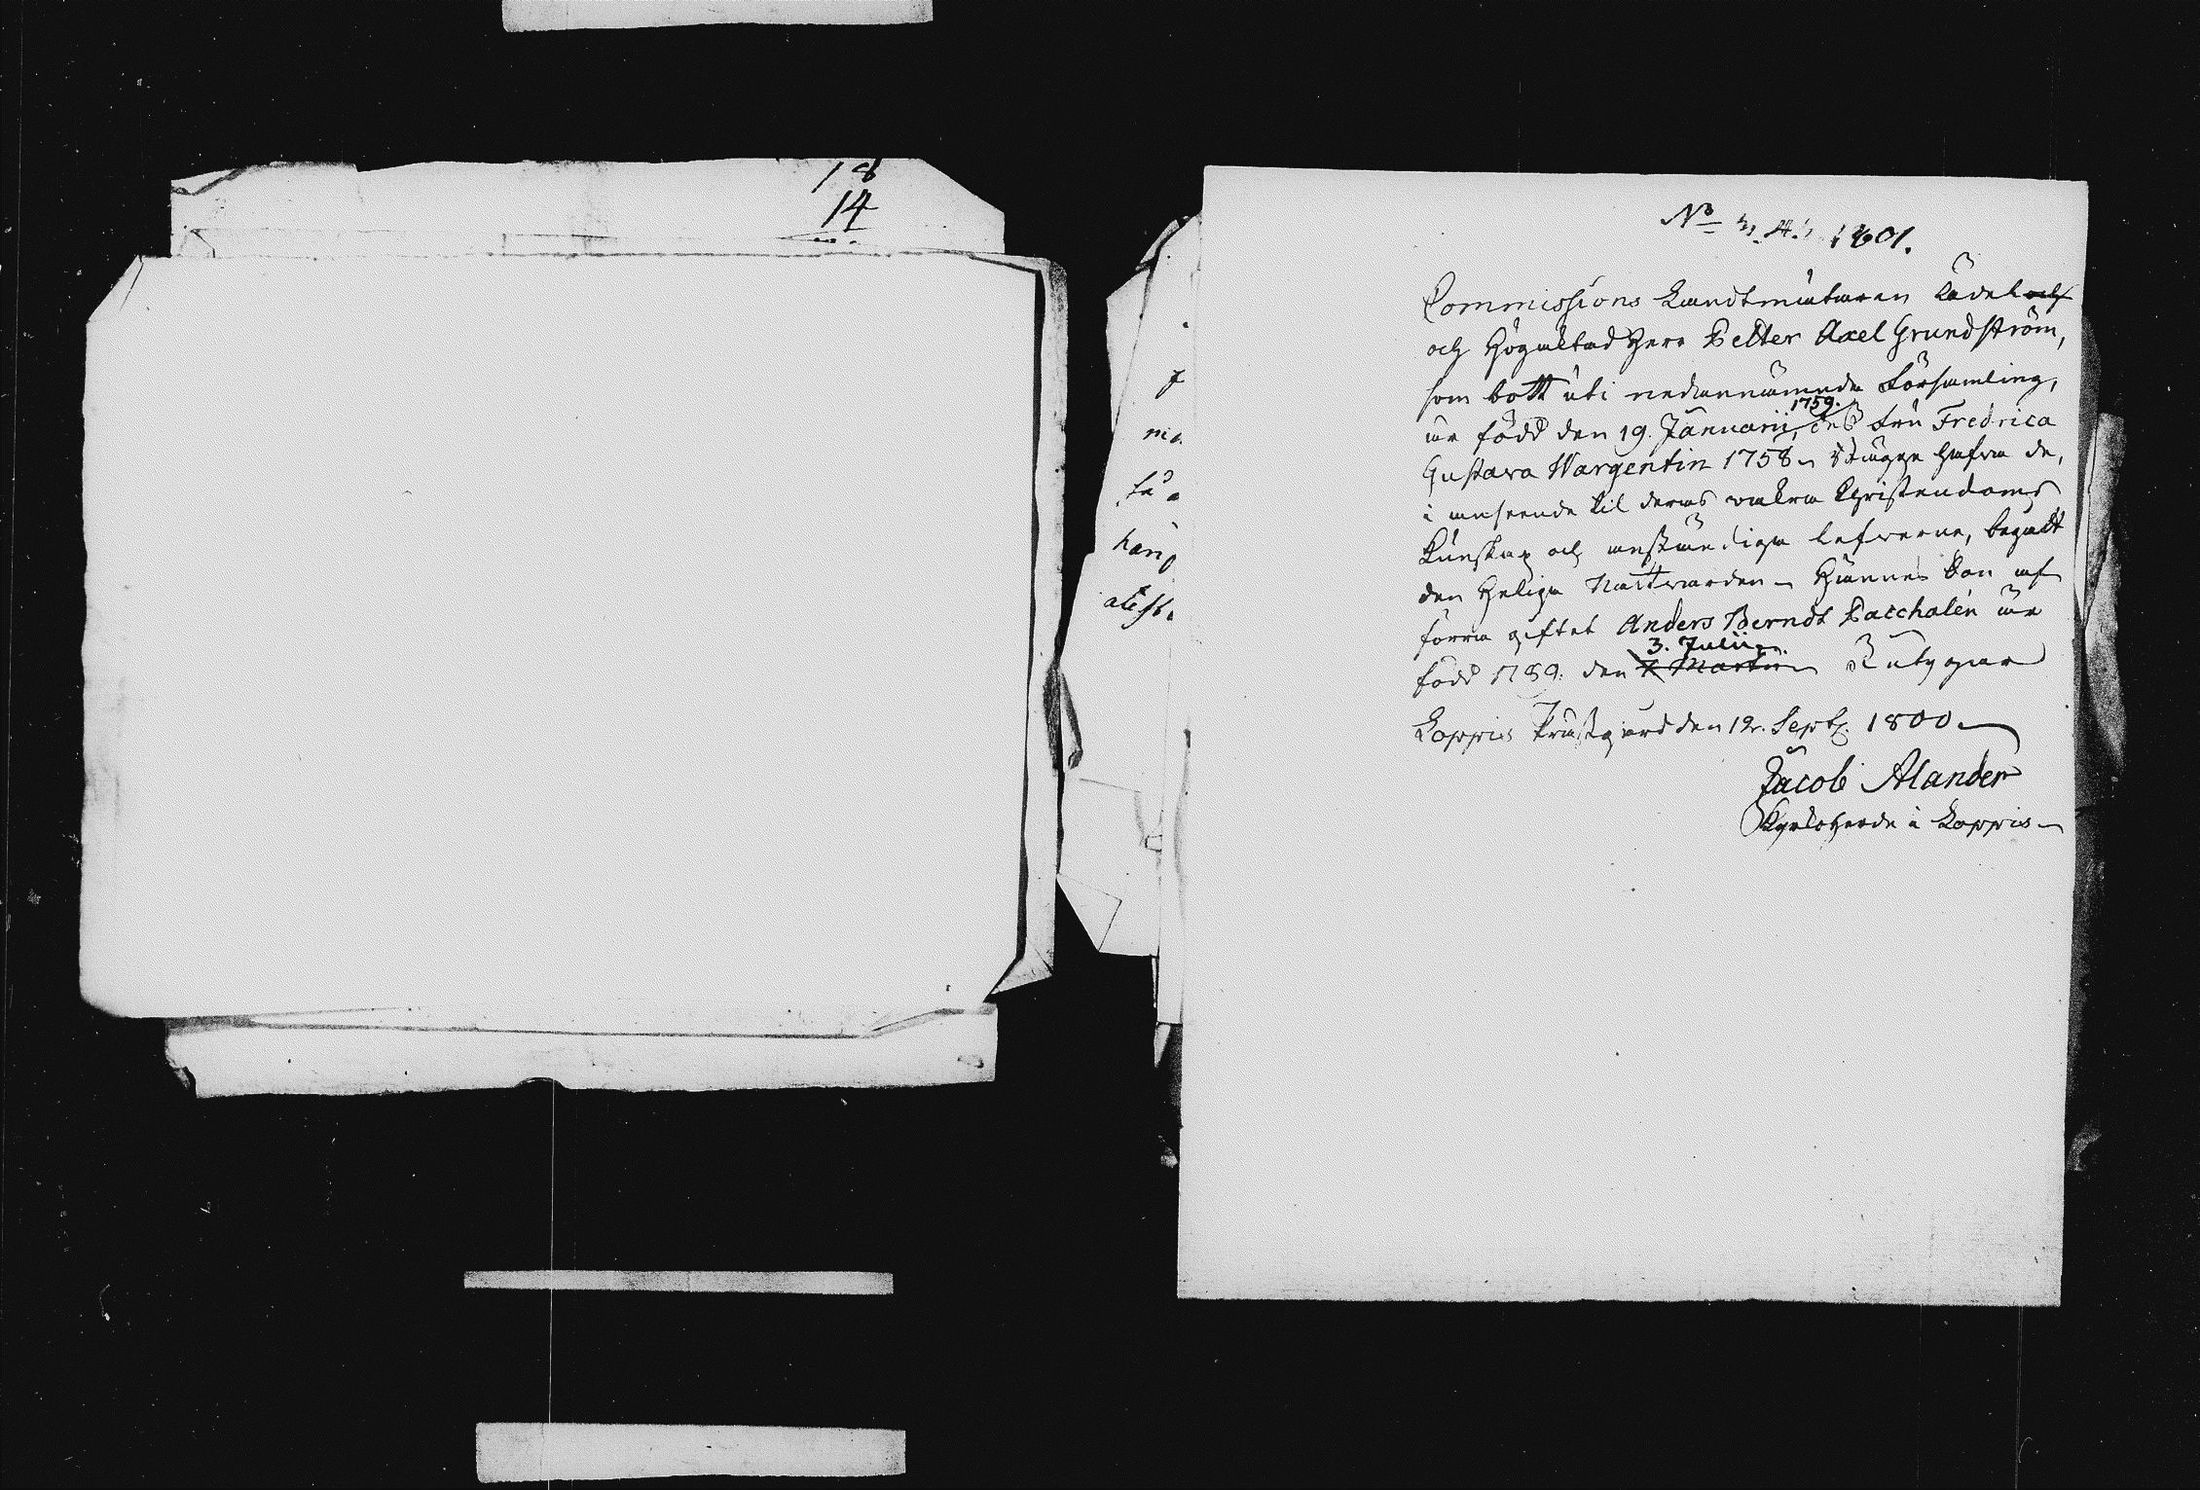 18
14
ma
häng
N:o 1801.
Commissions Landtmätaren Ädel och
och Högaktad Herr Petter Axel Grundström,
som bott uti nedannämnda Församling,
är född den 19. Januarii, 1759. des Fru Fredrica
Gustava Wargentin 1758. Begge hafva de,
i anseende til deras wakra Christendoms
Kunskap och anständiga lefverne, begådt
den Heliga Nattwarden. Hännes Son af
förra giftet Anders Berndt Patchalén är
född 1789. den 3. Julii 7 Martii
Loppis Prästgård den 12. Sept. 1800
Jacob Alander
Kyrkoherde i Loppis